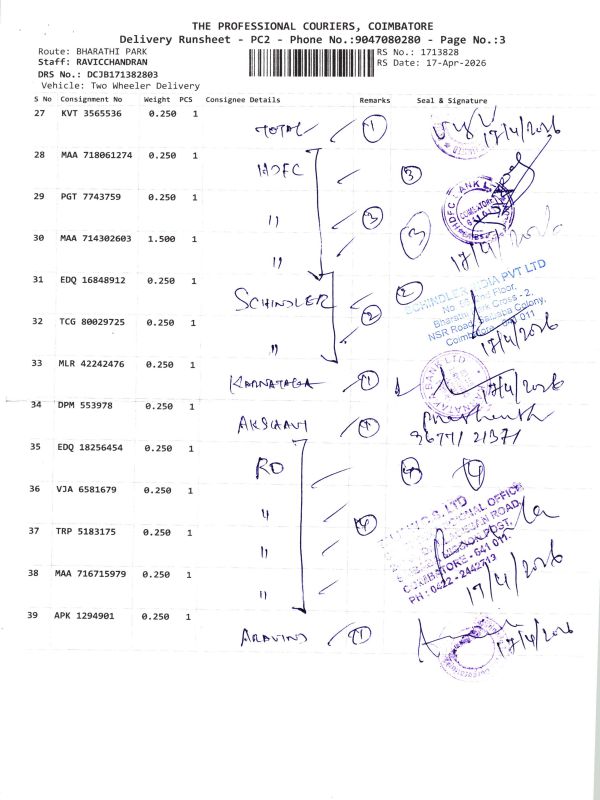 THE PROFESSIONAL COURIERS, COIMBATORE
Delivery Runsheet - PC2 - Phone No.:9047080280 - Page No.:3
Route: BHARATHI PARK
RS No.: 1713828
Staff: RAVICCHANDRAN
RS Date: 17-Apr-2026
DRS No.: DCJB171382803
Vehicle: Two Wheeler Delivery
S No Consignment No Weight PCS Consignee Details Remarks Seal & Signature
27 KVT 3565536 0.250 1
TOTAL 1 17/4/2026
28 MAA 718061274 0.250 1
HDFC 3
HDFC BANK LTD
29 PGT 7743759 0.250 1
" 3 3
30 MAA 714302603 1.500 1
" 17/4/2026
31 EDQ 16848912 0.250 1
SCHINDLER 2
SCHINDLER INDIA PVT LTD
Floor,
Bharathi Park Cross - 2,
NSR Road, Saibaba Colony,
Coimbatore - 641 011
32 TCG 80029725 0.250 1
" 2 17/4/2026
33 MLR 42242476 0.250 1
KARNATAGA 1 17/4/2026
BANK LTD
34 DPM 553978 0.250 1
1
35 EDQ 18256454 0.250 1
RO 4 4
36 VJA 6581679 0.250 1
" 4
LTD
OFFICE
ROAD,
MISSION POST,
COIMBATORE - 641 011.
PH : 0422 - 2442713
37 TRP 5183175 0.250 1
"
38 MAA 716715979 0.250 1
" 17/4/2026
39 APK 1294901 0.250 1
ARAVIND 1 17/4/2026